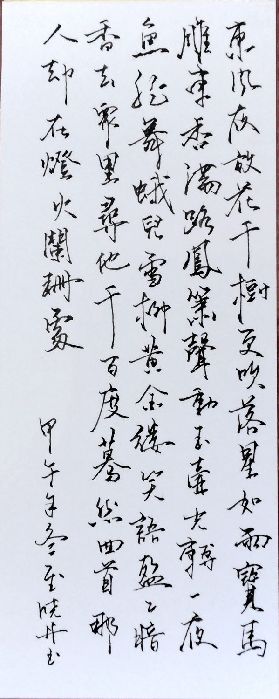 東風夜放花千樹更吹落星如雨寶馬
雕車香滿路鳳簫聲動玉壺光轉一夜
魚龍舞蛾兒雪柳黃金縷笑語盈〻暗
香去眾里尋他千百度驀然回首那
人却在燈火闌珊處
甲午年冬至晓丹书